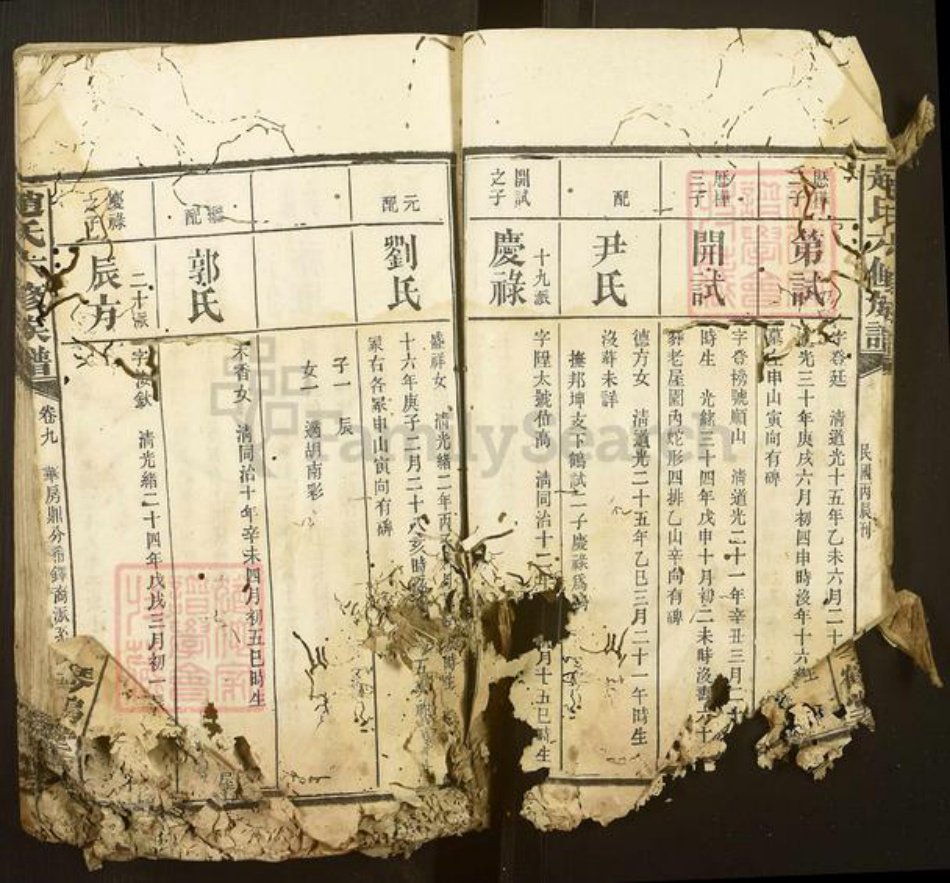 趙氏六修族譜
民國丙辰刊
歷樺
二子
第試
字登廷 清道光十五年乙未六月二十
光三十年庚戌六月初四申時沒年十六葬
墓左申山寅向有碑
歷樺
三子
開試
字登榜號順山 清道光二十一年辛丑三月二十
時生 光緒三十四年戊申十月初二未時沒壽六十
葬老屋園內蛇形四排乙山辛向有碑
配
尹氏
德方女 清道光二十五年乙巳三月二十一午時生
沒葬未詳
撫邦坤支下鶴試二子慶祿爲嗣
開試
之子
慶祿
十九派
字陞太號位高 清同治十二年
月十五巳時生
元配
劉氏
盛祥女 清光緒二年丙子
時生
十六年庚子二月二十八亥時沒
冢右各冢申山寅向有碑
子一 辰
女一 適胡南彩
繼配
郭氏
不香女 清同治十年辛未四月初五巳時生
慶祿
之子
辰方
二十派
字 清光緒二十四年戊戌三月初一
屋
趙氏六修族譜
卷九
華房鼎分希鐸商派系
琴鶴